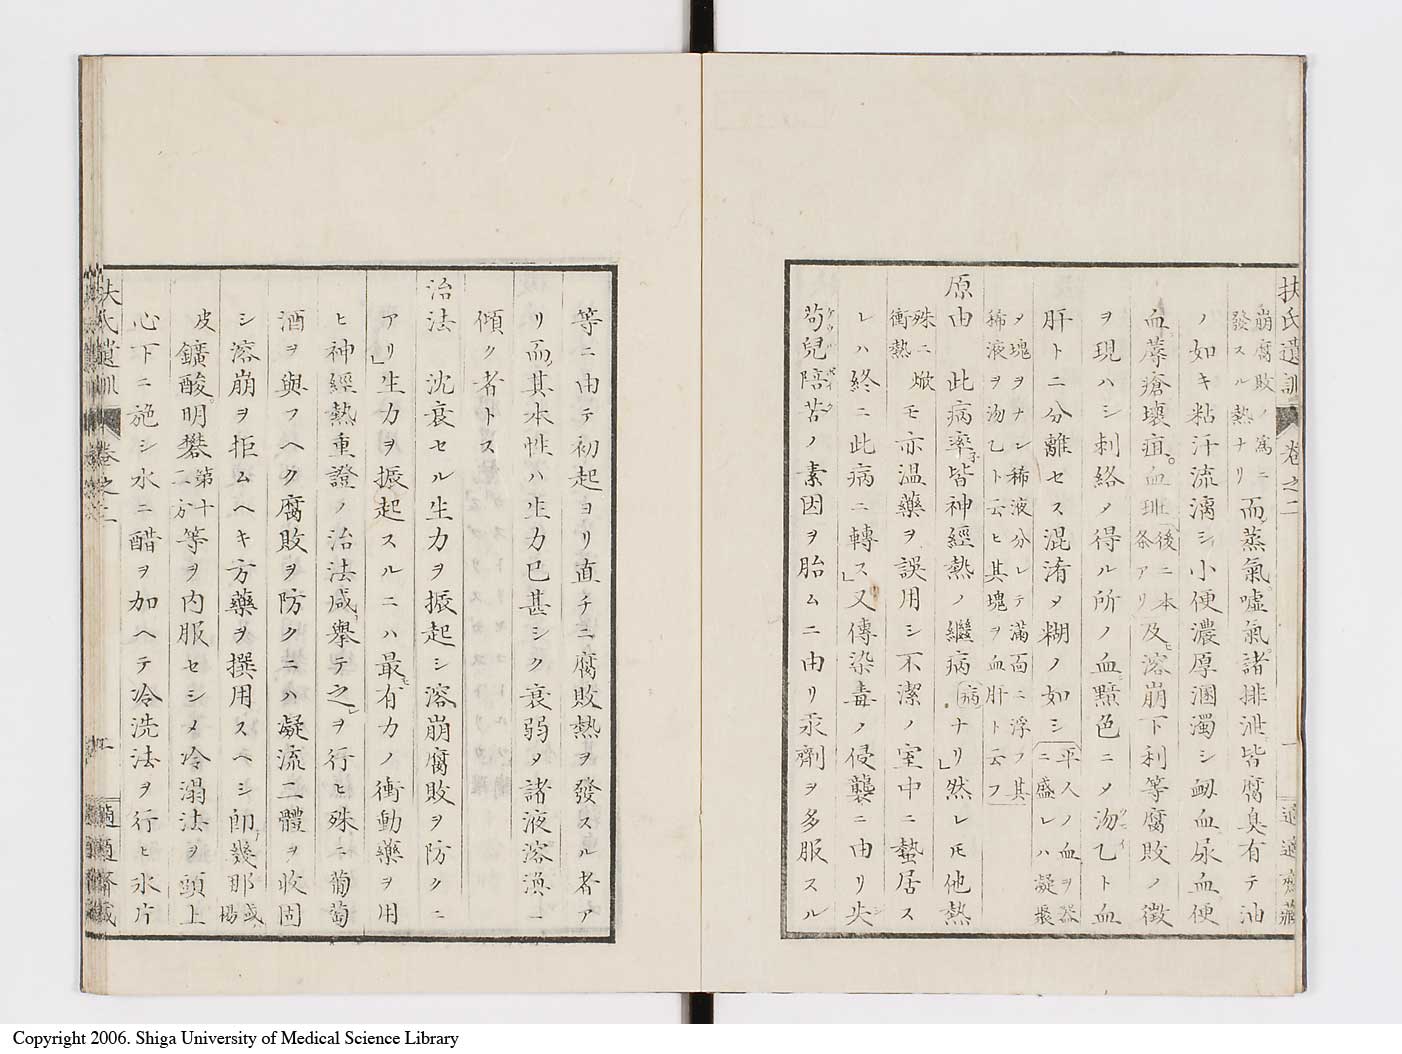 扶氏遺訓 卷之二 一 適適齋藏
崩腐敗ノ為ニ發スル熱ナリ而蒸氣。噓氣。諸排泄皆腐臭有テ油
ノ如キ粘汗流漓シ小便濃厚溷濁シ衂血尿血便
血。蓐瘡壞疽。血斑後ニ本条アリ及ヒ溶崩下利等腐敗ノ徵
ヲ現ハシ刺絡ノ得ル所ノ血黯色ニメ沕乙ト血
肝トニ分離セス混淆メ糊ノ如シ平人ノ血ヲ器ニ盛レハ凝聚
メ塊ヲナシ稀液分レテ滿面ニ浮フ其稀液ヲ沕乙ト云ヒ其塊ヲ血肝ト云フ
原由 此病率子皆神經熱ノ繼病病ナリ」然レ𪜈他熱
殊ニ焮衝熱モ亦温藥ヲ誤用シ不潔ノ室中ニ蟄居ス
レハ終ニ此病ニ轉ス」又傳染毒ノ侵襲ニ由リ失
苟兒陪苦ノ素因ヲ胎ムニ由リ汞劑ヲ多服スル
等ニ由テ初起ヨリ直チニ腐敗熱ヲ發スル者ア
リ而其本性ハ生力已甚シク衰弱メ諸液溶渙ニ
傾ク者トス
治法 沈衰セル生力ヲ振起シ溶崩腐敗ヲ防クニ
アリ」生力ヲ振起スルニハ最モ有力ノ衝動藥ヲ用
ヒ神經熱重證ノ治法咸擧テ之ヲ行ヒ殊ニ葡萄
酒ヲ與フヘク腐敗ヲ防クニハ凝流二體ヲ收固
シ溶崩ヲ拒ムヘキ方藥ヲ撰用スヘシ即チ幾那或ハ楊
皮鑛酸。明礬第十二方等ヲ内服セシメ冷溻法ヲ頭上
心下ニ施シ水ニ醋ヲ加ヘテ冷洗法ヲ行ヒ氷片
扶氏遺訓 卷之二 適適齋藏
Copyright 2006. Shiga University of Medical Science Library